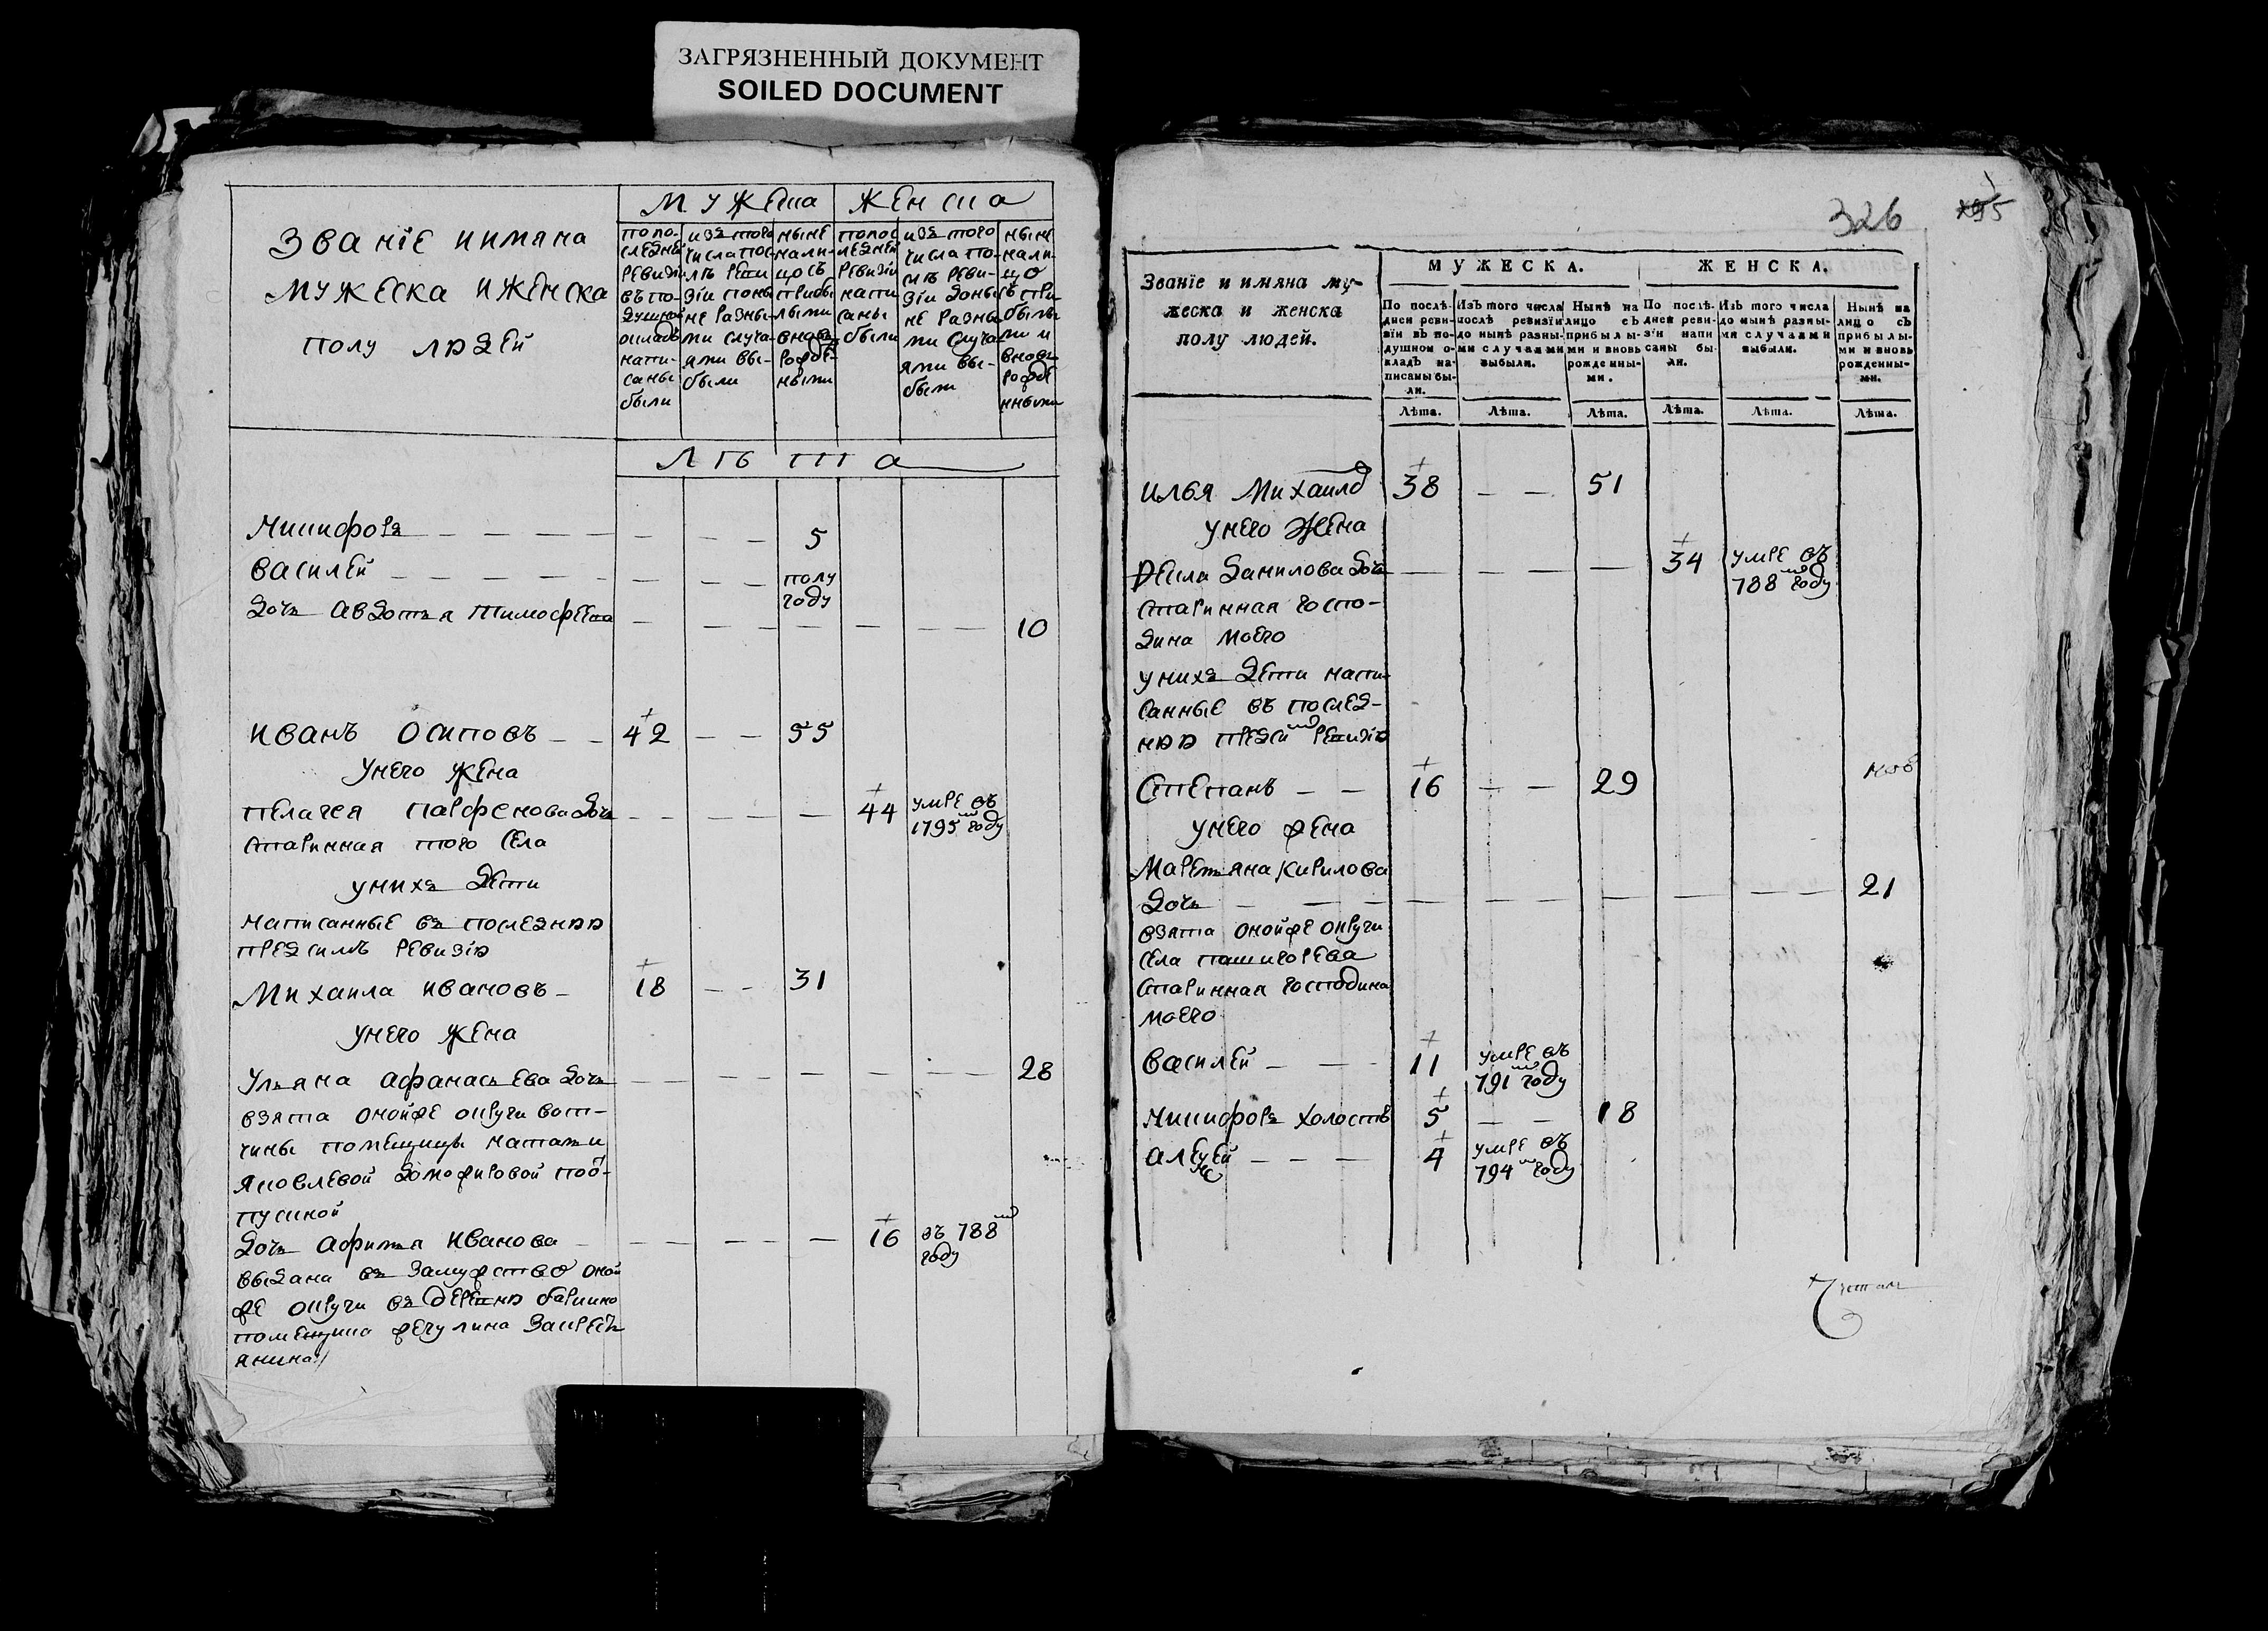 ЗАГРЯЗНЕННЫЙ ДОКУМЕНТ
SOILED DOCUMENT
званіе иимяна
мужеска иженска
полу людей
мужеска
женска
попо-
следней
ревизіи
въ по-
душной
окладъ
напи-
саны
были
изъ того
числа пос-
лѣ реви
зіи поны
не разны
ми случа
ями вы-
были
ныне
нали-
цо съ
прибы
лыми
вновь
рожде-
ными
попос
ледней
ревизіи
напи
саны
были
изъ того
числа по-
слѣ реви-
зіи доны
не разны
ми случа
ями вы-
были
ныне
нали-
цо
съ при
былы
ми и
вновь
рожде
нными
лѣта
Никифоръ 5
Василей полу
году
дочь Авдотья Тимофеева 10
Иванъ Осиповъ 42 55
унего жена
Пелагея Парфенова дочь 44 умре въ
1795м году
старинная того села
унихъ дети
написанные въ последнюю
предсимъ ревизію
Михаила Ивановъ 18 31
унего жена
Ульяна Афанасьева дочь 28
взята онойже округи вот-
чины помещицы Натальи
Яковлевой Доможировой по
дочь Афимья Иванова 16 въ 788м
году
выдана въ замужство оной
же округи въ деревню
помещика
326
Званїе и имяна му-
жеска и женска
полу людей.
МУЖЕСКА.
ЖЕНСКА.
По послѣ-
дней реви-
зіи въ по-
душном о-
кладѣ на-
писаны бы-
ли.
Изъ того числа
послѣ ревизїи
до нынѣ разны-
ми случаями
выбыли.
Нынѣ на
лицо съ
прибылы-
ми и вновь
рожденны-
ми.
По послѣ-
дней реви-
зїи напи
саны бы-
ли.
Изъ того числа
до нынѣ разны-
ми случаями
выбыли.
Нынѣ на
лицо съ
прибылы-
ми и вновь
рожденны-
ми.
Лѣта. Лѣта. Лѣта. Лѣта. Лѣта. Лѣта.
Илья Михаилов 38 51
унего жена
Фекла Данилова дочь 34 умре въ
788м году
старинная госпо-
дина моего
унихъ дети напи-
санные въ послед-
нюю предсим ревизію
Степанъ 16 29
унего жена
Маремьяна Кирилова
дочь 21
взята онойже округи
села
старинная господина
моего
Василей 11 умре въ
791м году
Никифоръ холостъ 5 18
Алексей 4 умре въ
794м году